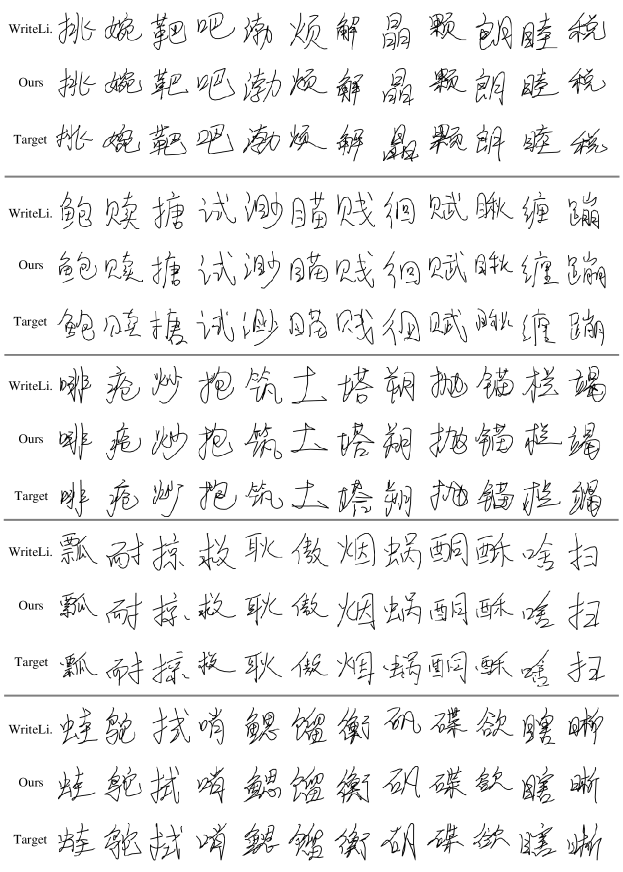 WriteLi. 挑 婉 靶 吧 渤 烦 解 晶 颗 朗 睦 税
Ours 挑 婉 靶 吧 渤 烦 解 晶 颗 朗 睦 税
Target 挑 婉 靶 吧 渤 烦 解 晶 颗 朗 睦 税
WriteLi. 鲍 赎 搪 试 渺 瞄 贱 徊 赋 瞅 缠 蹦
Ours 鲍 赎 搪 试 渺 瞄 贱 徊 赋 瞅 缠 蹦
Target 鲍 赎 搪 试 渺 瞄 贱 徊 赋 瞅 缠 蹦
WriteLi. 啡 疮 炒 抱 筑 土 塔 朔 抛 锚 栏 竭
Ours 啡 疮 炒 抱 筑 土 塔 朔 抛 锚 栏 竭
Target 啡 疮 炒 抱 筑 土 塔 朔 抛 锚 栏 竭
WriteLi. 瓢 耐 掠 救 耿 傲 烟 蜗 酮 酥 啥 扫
Ours 瓢 耐 掠 救 耿 傲 烟 蜗 酮 酥 啥 扫
Target 瓢 耐 掠 救 耿 傲 烟 蜗 酮 酥 啥 扫
WriteLi. 蛙 鸵 拭 哨 鳃 馏 衡 矾 碟 欲 瞎 晰
Ours 蛙 鸵 拭 哨 鳃 馏 衡 矾 碟 欲 瞎 晰
Target 蛙 鸵 拭 哨 鳃 馏 衡 矾 碟 欲 瞎 晰